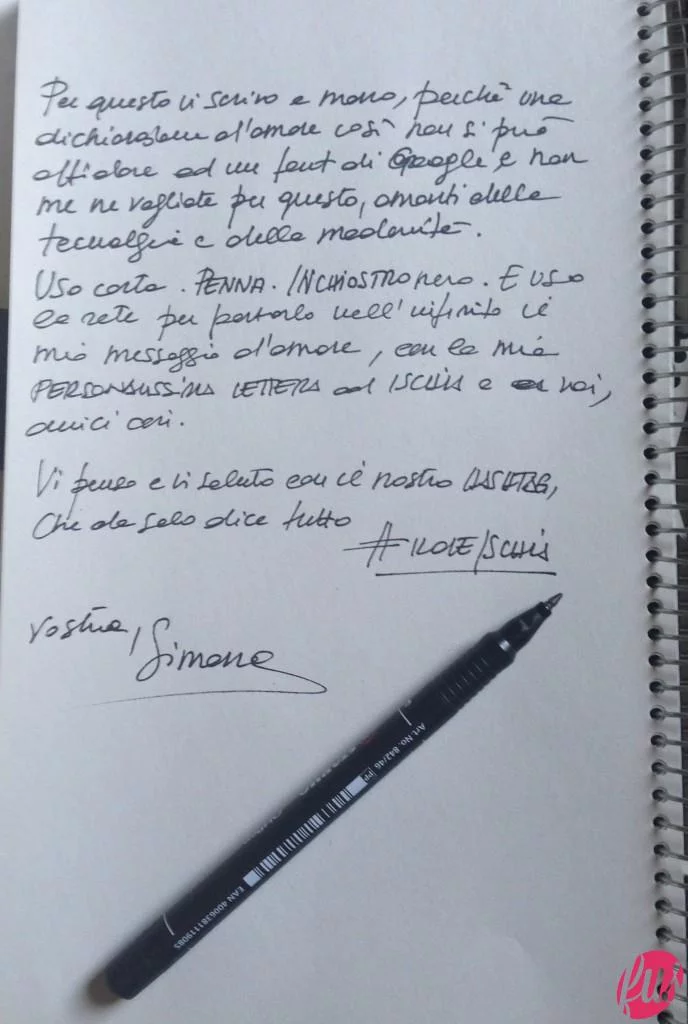 Per questo vi scrivo a mano, perché una
dichiarazione d'amore così non si può
affidare ad un font di Google e non
me ne vogliate per questo, amanti della
tecnologia e della modernità.
Uso carta. PENNA. INCHIOSTRO nero. E uso
la rete per portarlo nell'infinito il
mio messaggio d'amore, con la mia
PERSONALISSIMA LETTERA ad ISCHIA e a voi,
amici cari.
Vi penso e vi saluto con il nostro HASHTAG,
Che da solo dice tutto
#ILOVEISCHIA
Vostra, Simona
Art.No. 842/46 PP
EAN 4006381119085